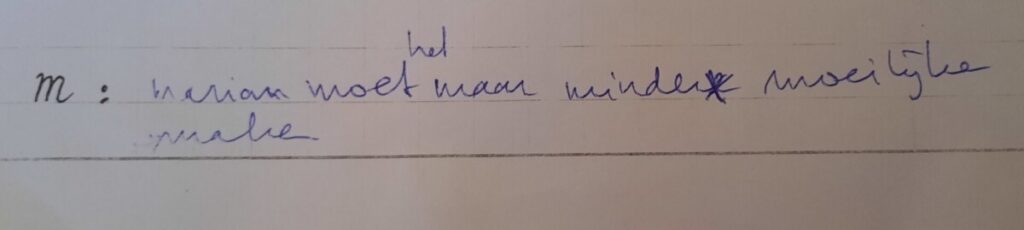 M : marian moet het maar minder moeilijke
make